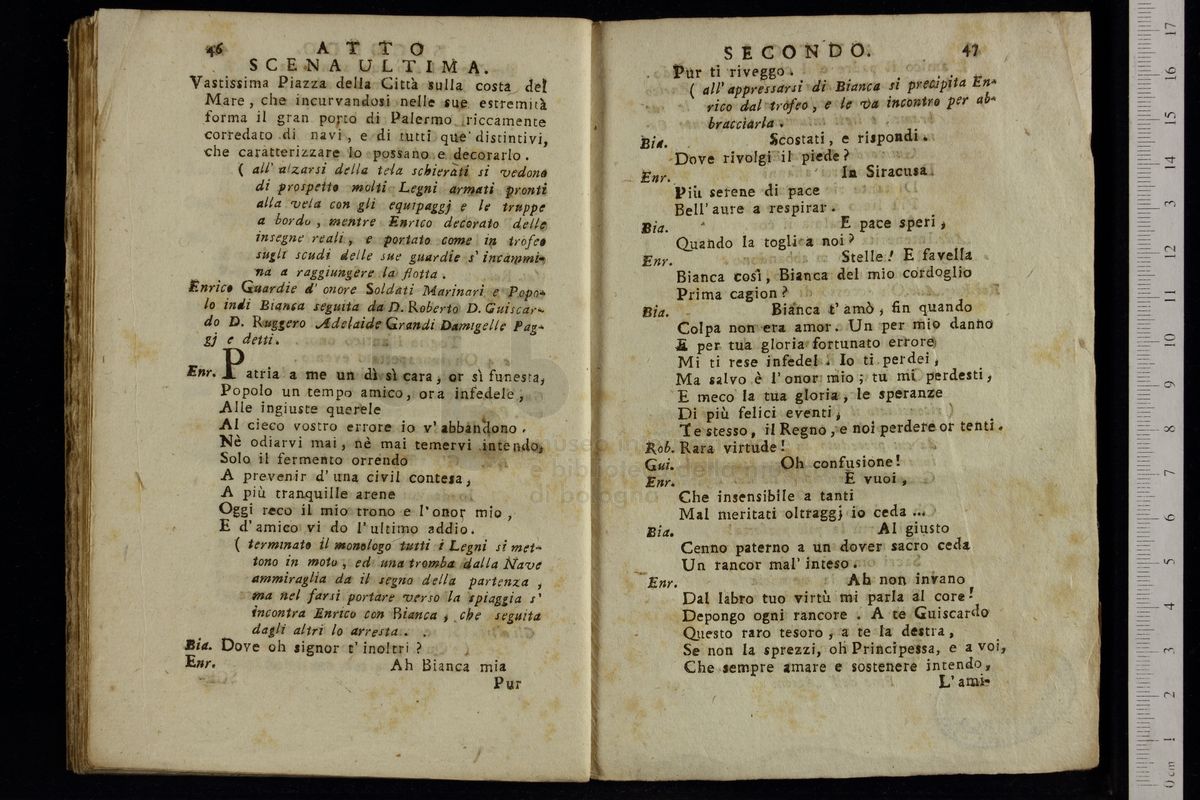 46 ATTO
SCENA ULTIMA.
Vastissima Piazza della Città sulla costa del
Mare, che incurvandosi nelle sue estremità
forma il gran porto di Palermo riccamente
corredato di navi, e di tutti que' distintivi,
che caratterizzare lo possano e decorarlo.
( all' alzarsi della tela schierati si vedono
di prospetto molti Legni armati pronti
alla vela con gli equipaggj e le truppe
a bordo, mentre Enrico decorato delle
insegne reali, e portato come in trofeo
sugli scudi delle sue guardie s' incammi-
na a raggiungere la flotta.
Enrico Guardie d' onore Soldati Marinari e Popo-
lo indi Bianca seguita da D. Roberto D. Guiscar-
do D. Ruggero Adelaide Grandi Damigelle Pag-
gj e detti.
Enr. Patria a me un dì sì cara, or sì funesta,
Popolo un tempo amico, ora infedele,
Alle ingiuste querele
Al cieco vostro errore io v'abbandono.
Nè odiarvi mai, nè mai temervi intendo,
Solo il fermento orrendo
A prevenir d'una civil contesa,
A più tranquille arene
Oggi reco il mio trono e l'onor mio,
E d'amico vi do l'ultimo addio.
( terminato il monologo tutti i Legni si met-
tono in moto, ed una tromba dalla Nave
ammiraglia da il segno della partenza,
ma nel farsi portare verso la spiaggia s'
incontra Enrico con Bianca, che seguita
dagli altri lo arresta.
Bia. Dove oh signor t'inoltri?
Enr. Ah Bianca mia
Pur
SECONDO. 47
Pur ti riveggo.
( all' appressarsi di Bianca si precipita En-
rico dal trofeo, e le va incontro per ab-
bracciarla.
Bia. Scostati, e rispondi.
Dove rivolgi il piede?
Enr. In Siracusa
Più serene di pace
Bell'aure a respirar.
Bia. E pace speri,
Quando la togli a noi?
Enr. Stelle! E favella
Bianca così, Bianca del mio cordoglio
Prima cagion?
Bia. Bianca t'amò, fin quando
Colpa non era amor. Un per mio danno
E per tua gloria fortunato errore
Mi ti rese infedel. Io ti perdei,
Ma salvo è l'onor mio; tu mi perdesti,
E meco la tua gloria, le speranze
Di più felici eventi,
Te stesso, il Regno, e noi perdere or tenti.
Rob. Rara virtude!
Gui. Oh confusione!
Enr. E vuoi,
Che insensibile a tanti
Mal meritati oltraggj io ceda ...
Bia. Al giusto
Cenno paterno a un dover sacro ceda
Un rancor mal' inteso.
Enr. Ah non invano
Dal labro tuo virtù mi parla al core!
Depongo ogni rancore. A te Guiscardo
Questo raro tesoro, a te la destra,
Se non la sprezzi, oh Principessa, e a voi,
Che sempre amare e sostenere intendo,
L'ami-